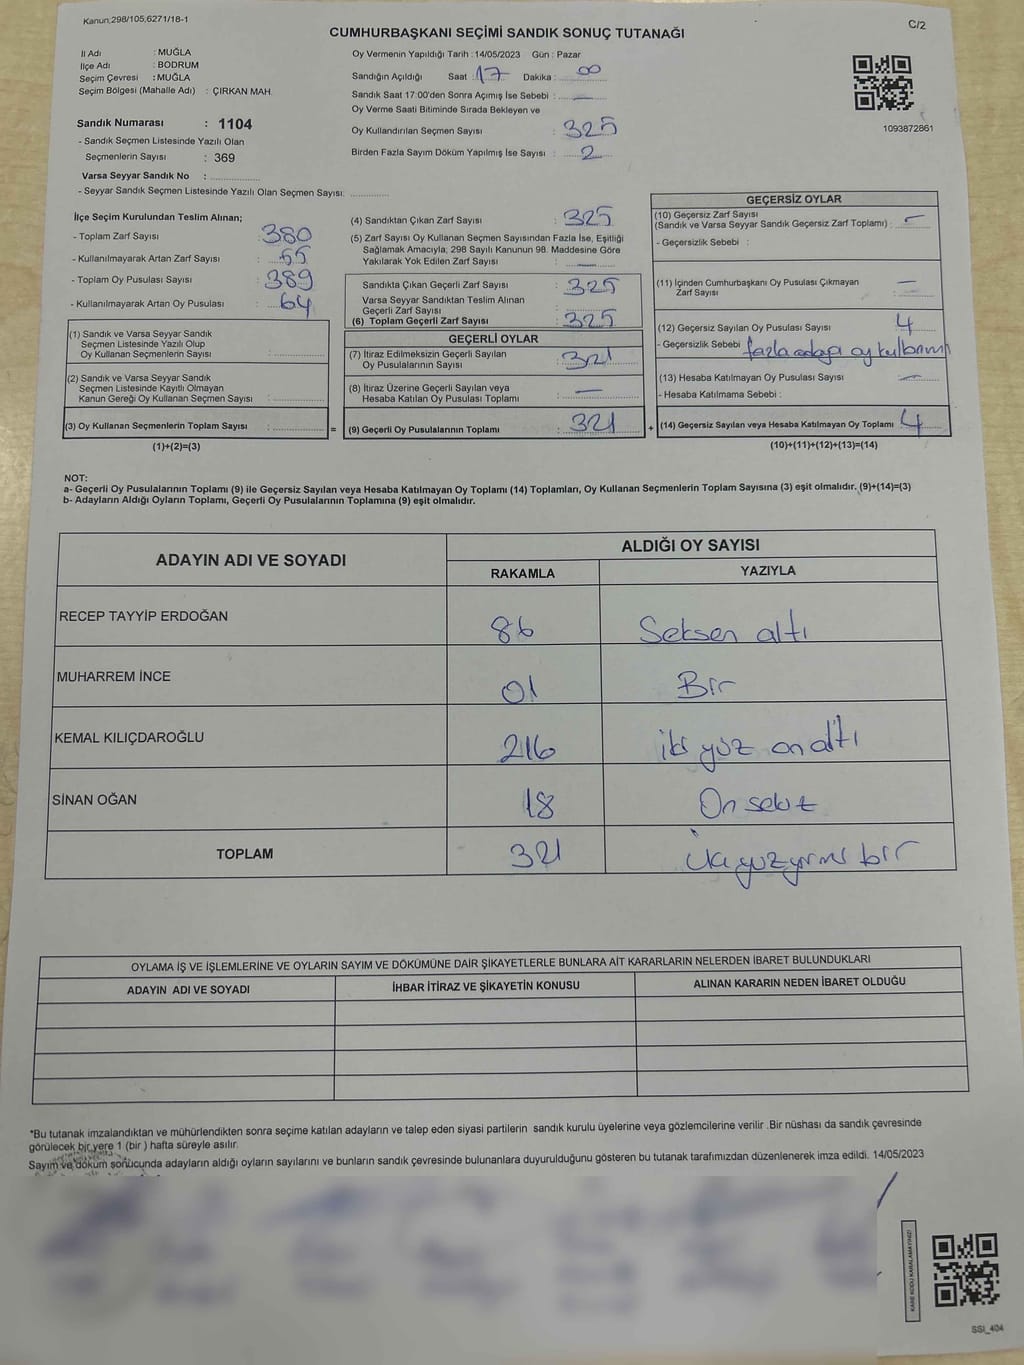 Kanun;298/105,6271/18-1
C/2
CUMHURBAŞKANI SEÇİMİ SANDIK SONUÇ TUTANAĞI
İl Adı : MUĞLA
İlçe Adı : BODRUM
Seçim Çevresi : MUĞLA
Seçim Bölgesi (Mahalle Adı) : ÇIRKAN MAH.
Sandık Numarası : 1104
- Sandık Seçmen Listesinde Yazılı Olan
Seçmenlerin Sayısı : 369
Varsa Seyyar Sandık No : ..............
- Seyyar Sandık Seçmen Listesinde Yazılı Olan Seçmen Sayısı: ............
Oy Vermenin Yapıldığı Tarih : 14/05/2023 Gün : Pazar
Sandığın Açıldığı Saat : 17 Dakika : 00
Sandık Saat 17:00'den Sonra Açımış İse Sebebi : —
Oy Verme Saati Bitiminde Sırada Bekleyen ve
Oy Kullandırılan Seçmen Sayısı : 325
Birden Fazla Sayım Döküm Yapılmış İse Sayısı : 2
1093872861
İlçe Seçim Kurulundan Teslim Alınan;
- Toplam Zarf Sayısı : 380
- Kullanılmayarak Artan Zarf Sayısı : 55
- Toplam Oy Pusulası Sayısı : 389
- Kullanılmayarak Artan Oy Pusulası : 64
(1) Sandık ve Varsa Seyyar Sandık
Seçmen Listesinde Yazılı Olup
Oy Kullanan Seçmenlerin Sayısı : ..............
(2) Sandık ve Varsa Seyyar Sandık
Seçmen Listesinde Kayıtlı Olmayan
Kanun Gereği Oy Kullanan Seçmen Sayısı : ..............
(3) Oy Kullanan Seçmenlerin Toplam Sayısı : .............. =
(1)+(2)=(3)
(4) Sandıktan Çıkan Zarf Sayısı : 325
(5) Zarf Sayısı Oy Kullanan Seçmen Sayısından Fazla İse, Eşitliği
Sağlamak Amacıyla; 298 Sayılı Kanunun 98. Maddesine Göre
Yakılarak Yok Edilen Zarf Sayısı : —
Sandıkta Çıkan Geçerli Zarf Sayısı : 325
Varsa Seyyar Sandıktan Teslim Alınan
Geçerli Zarf Sayısı :
(6) Toplam Geçerli Zarf Sayısı : 325
GEÇERLİ OYLAR
(7) İtiraz Edilmeksizin Geçerli Sayılan
Oy Pusulalarının Sayısı : 321
(8) İtiraz Üzerine Geçerli Sayılan veya
Hesaba Katılan Oy Pusulası Toplamı : —
(9) Geçerli Oy Pusulalarının Toplamı : 321 +
GEÇERSİZ OYLAR
(10) Geçersiz Zarf Sayısı
(Sandık ve Varsa Seyyar Sandık Geçersiz Zarf Toplamı) : —
- Geçersizlik Sebebi :
(11) İçinden Cumhurbaşkanı Oy Pusulası Çıkmayan
Zarf Sayısı : —
(12) Geçersiz Sayılan Oy Pusulası Sayısı : 4
- Geçersizlik Sebebi fazla adaya oy
(13) Hesaba Katılmayan Oy Pusulası Sayısı : —
- Hesaba Katılmama Sebebi :
(14) Geçersiz Sayılan veya Hesaba Katılmayan Oy Toplamı : 4
(10)+(11)+(12)+(13)=(14)
NOT:
a- Geçerli Oy Pusulalarının Toplamı (9) ile Geçersiz Sayılan veya Hesaba Katılmayan Oy Toplamı (14) Toplamları, Oy Kullanan Seçmenlerin Toplam Sayısına (3) eşit olmalıdır. (9)+(14)=(3)
b- Adayların Aldığı Oyların Toplamı, Geçerli Oy Pusulalarının Toplamına (9) eşit olmalıdır.
ADAYIN ADI VE SOYADI
ALDIĞI OY SAYISI
RAKAMLA YAZIYLA
RECEP TAYYİP ERDOĞAN 86 Seksen altı
MUHARREM İNCE 01 Bir
KEMAL KILIÇDAROĞLU 216 iki yüz on altı
SİNAN OĞAN 18 On sekiz
TOPLAM 321 bir
OYLAMA İŞ VE İŞLEMLERİNE VE OYLARIN SAYIM VE DÖKÜMÜNE DAİR ŞİKAYETLERLE BUNLARA AİT KARARLARIN NELERDEN İBARET BULUNDUKLARI
ADAYIN ADI VE SOYADI
İHBAR İTİRAZ VE ŞİKAYETİN KONUSU
ALINAN KARARIN NEDEN İBARET OLDUĞU
*Bu tutanak imzalandıktan ve mühürlendikten sonra seçime katılan adayların ve talep eden siyasi partilerin sandık kurulu üyelerine veya gözlemcilerine verilir .Bir nüshası da sandık çevresinde
görülecek bir yere 1 (bir ) hafta süreyle asılır.
Sayım ve döküm sonucunda adayların aldığı oyların sayılarını ve bunların sandık çevresinde bulunanlara duyurulduğunu gösteren bu tutanak tarafımızdan düzenlenerek imza edildi. 14/05/2023
KARE KODU KARALAMAYINIZ!
SSI_404